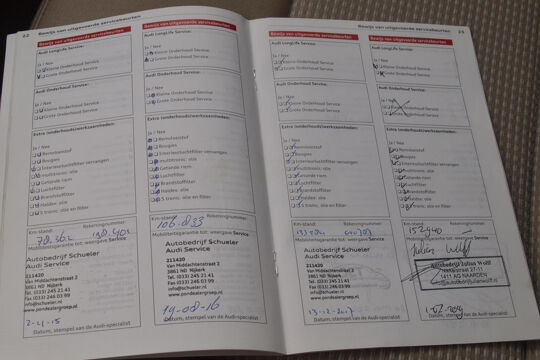 22
Bewijs van uitgevoerde servicebeurten
Bewijs van uitgevoerde servicebeurten
Audi LongLife Service:
Ja / Nee
Kleine Onderhoud Service
Grote Onderhoud Service
Audi Onderhoud Service:
Ja / Nee
Kleine Onderhoud Service
Grote Onderhoud Service
Extra (onderhouds)werkzaamheden:
Ja / Nee
Remvloeistof
Bougies
Interieurluchtfilter vervangen
multitronic: olie
Getande riem
Luchtfilter
Brandstoffilter
Haldex: olie
S tronic: olie en filter
Km-stand: Rekeningnummer:
78.362
Mobiliteitsgarantie tot: weergave Service
Autobedrijf Schueler
Audi Service
211420
Van Middachtenstraat 2
3861 ND Nijkerk
Tel. (033) 245 21 41
Fax (033) 246 03 99
info@schueler.nl
www.pondealergroep.nl
2-4-15
Datum, stempel van de Audi-specialist
Bewijs van uitgevoerde servicebeurten
Audi LongLife Service:
Ja / Nee
Kleine Onderhoud Service
Grote Onderhoud Service
Audi Onderhoud Service:
Ja / Nee
Kleine Onderhoud Service
Grote Onderhoud Service
Extra (onderhouds)werkzaamheden:
Ja / Nee
Remvloeistof
Bougies
Interieurluchtfilter vervangen
multitronic: olie
Getande riem
Luchtfilter
Brandstoffilter
Haldex: olie
S tronic: olie en filter
Km-stand: Rekeningnummer:
106.833
Mobiliteitsgarantie tot: weergave Service
Autobedrijf Schueler
Audi Service
211420
Van Middachtenstraat 2
3861 ND Nijkerk
Tel. (033) 245 21 41
Fax (033) 246 03 99
info@schueler.nl
www.pondealergroep.nl
19-08-16
Datum, stempel van de Audi-specialist
Bewijs van uitgevoerde servicebeurten
23
Bewijs van uitgevoerde servicebeurten
Audi LongLife Service:
Ja / Nee
Kleine Onderhoud Service
Grote Onderhoud Service
Audi Onderhoud Service:
Ja / Nee
Kleine Onderhoud Service
Grote Onderhoud Service
Extra (onderhouds)werkzaamheden:
Ja / Nee
Remvloeistof
Bougies
Interieurluchtfilter vervangen
multitronic: olie
Getande riem
Luchtfilter
Brandstoffilter
Haldex: olie
S tronic: olie en filter
Km-stand: Rekeningnummer:
Mobiliteitsgarantie tot: weergave Service
Autobedrijf Schueler
Audi Service
211420
Van Middachtenstraat 2
3861 ND Nijkerk
Tel. (033) 245 21 41
Fax (033) 246 03 99
info@schueler.nl
www.pondealergroep.nl
13-12-2017
Datum, stempel van de Audi-specialist
Bewijs van uitgevoerde servicebeurten
Audi LongLife Service:
Ja / Nee
Kleine Onderhoud Service
Grote Onderhoud Service
Audi Onderhoud Service:
Ja / Nee
Kleine Onderhoud Service
Grote Onderhoud Service
Extra (onderhouds)werkzaamheden:
Ja / Nee
Remvloeistof
Bougies
Interieurluchtfilter vervangen
multitronic: olie
Getande riem
Luchtfilter
Brandstoffilter
Haldex: olie
S tronic: olie en filter
Km-stand: Rekeningnummer:
152940
Mobiliteitsgarantie tot: weergave Service
Julian Wolff
Autobedrijf Julius Wolff
27-11
1411 AG NAARDEN
Datum, stempel van de Audi-specialist